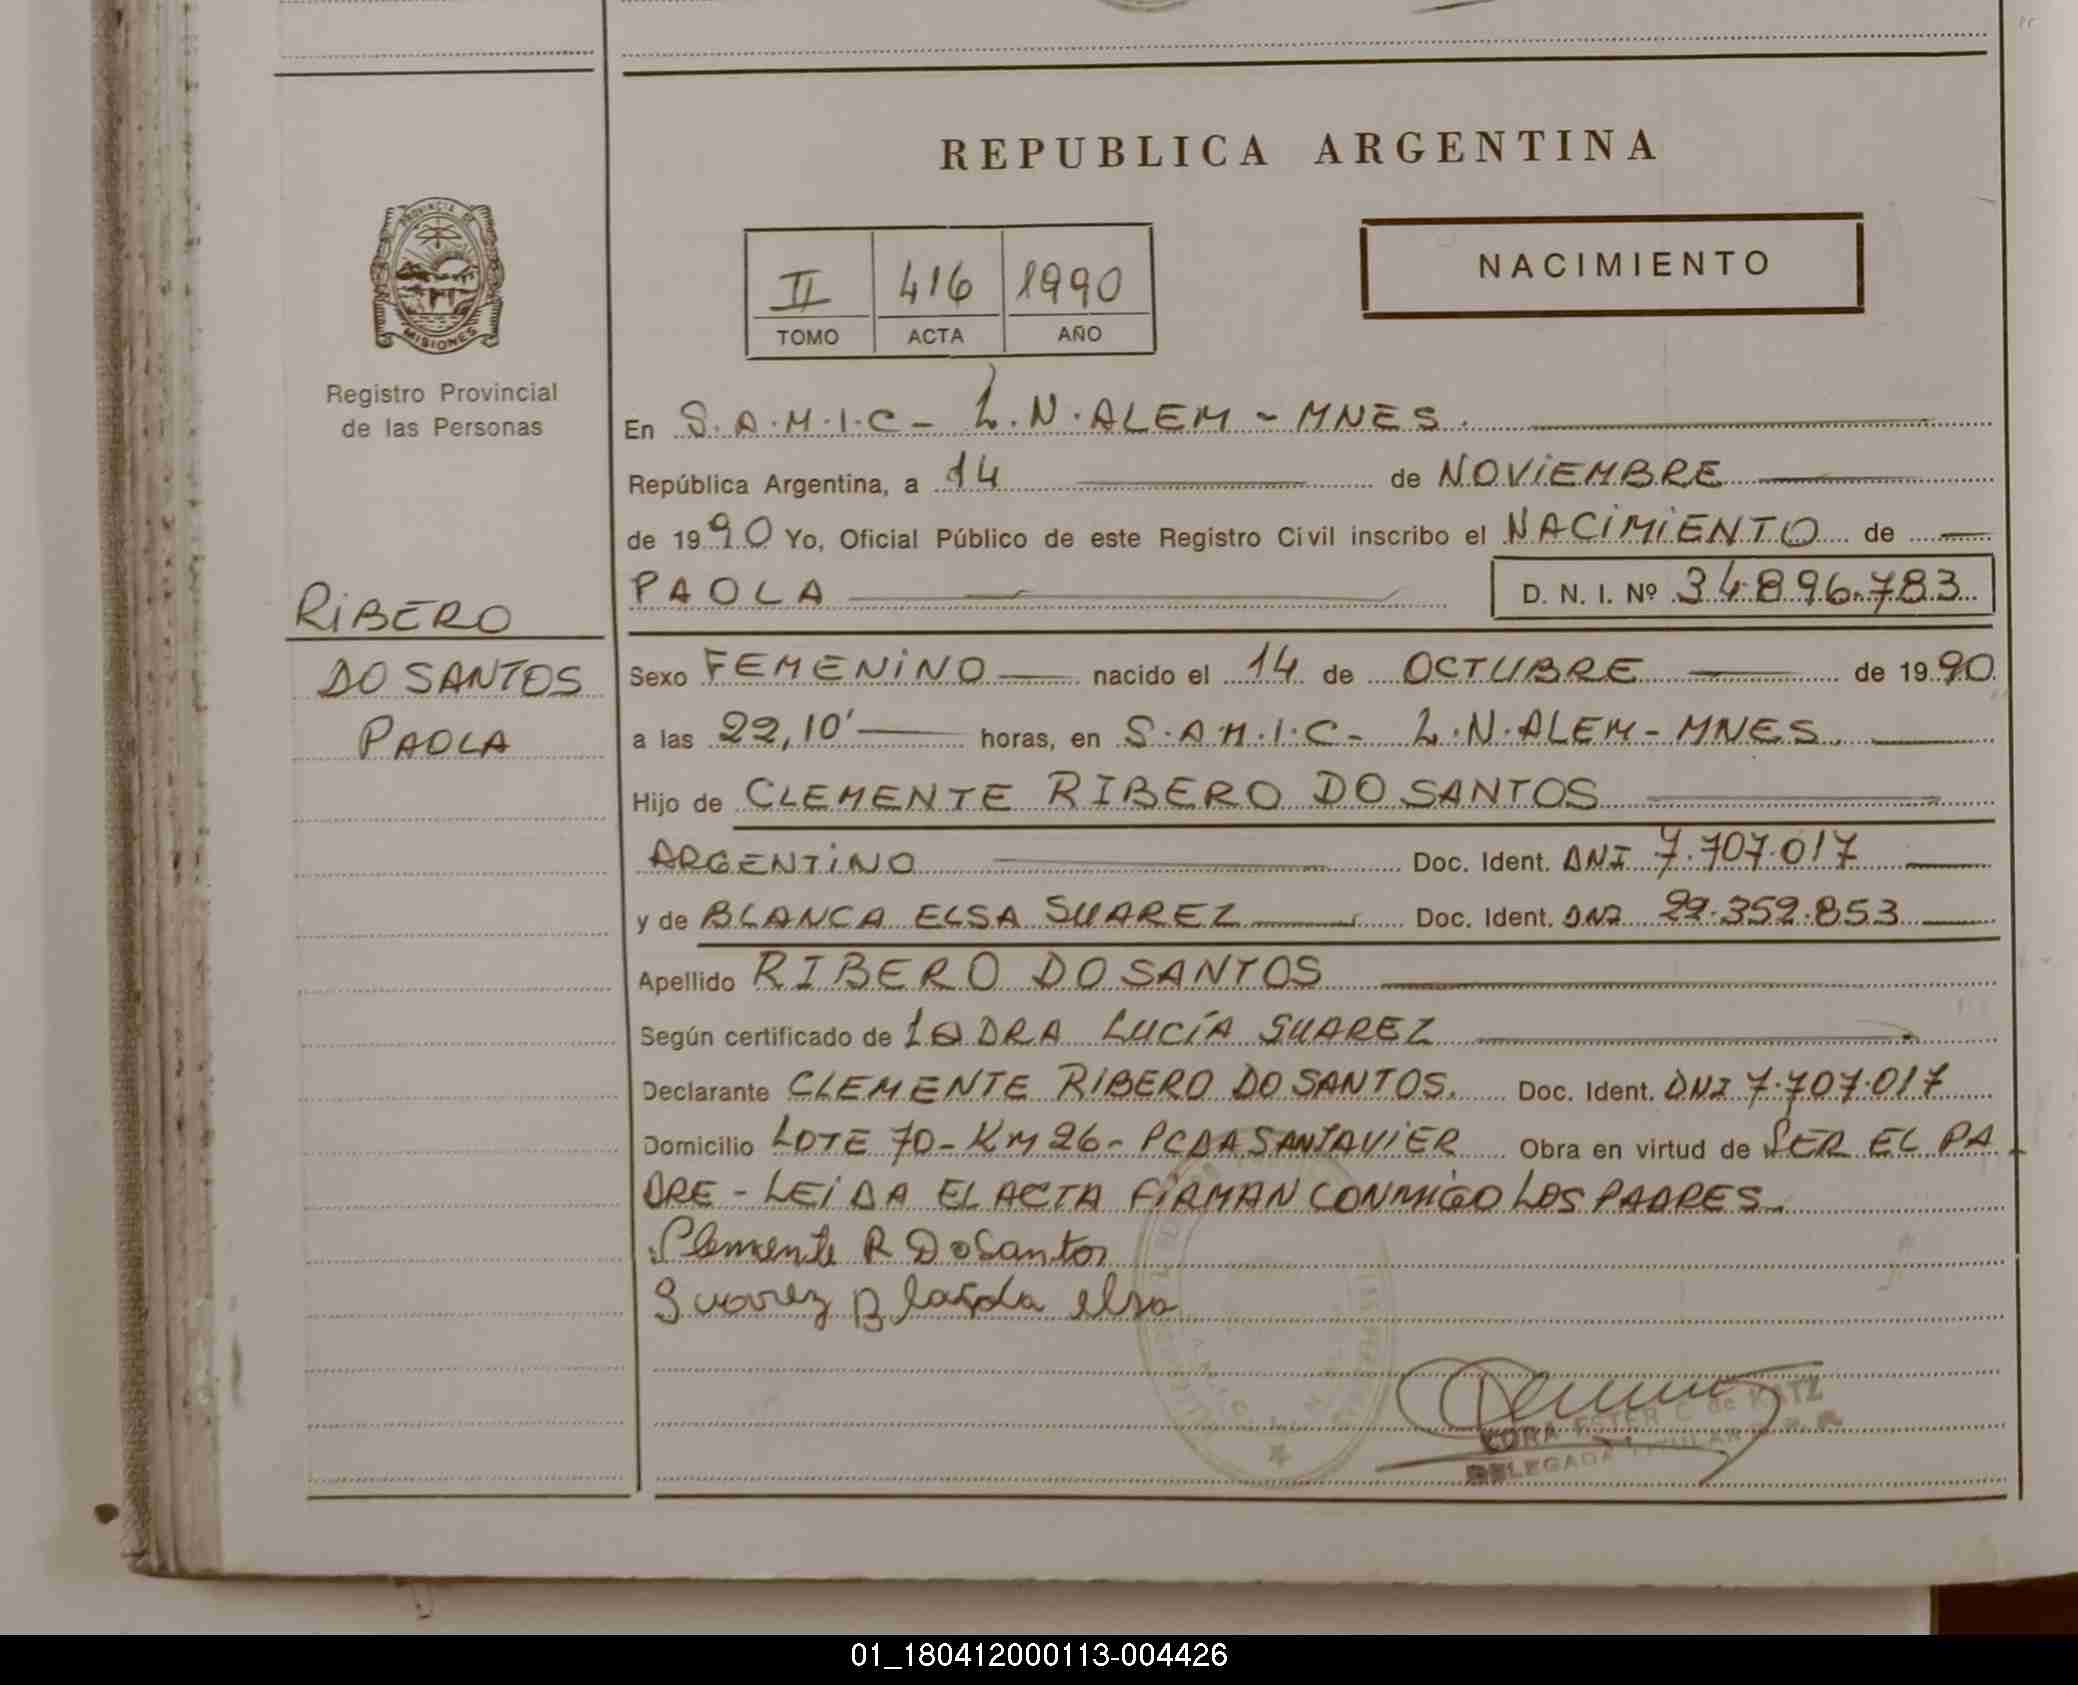 REPUBLICA ARGENTINA
PROVINCIA DE
MISIONES
Registro Provincial
de las Personas
RIBERO
DO SANTOS
PAOLA
II 416 1990
TOMO ACTA AÑO
NACIMIENTO
En S.A.M.I.C- L.N.ALEM - MNES.
República Argentina, a 14 de NOVIEMBRE
de 1990 Yo, Oficial Público de este Registro Civil inscribo el NACIMIENTO de
PAOLA D. N. I. Nº 34.896.783
Sexo FEMENINO nacido el 14 de OCTUBRE de 1990
a las 22,10' horas, en S.A.M.I.C- L.N.ALEM - MNES.
Hijo de CLEMENTE RIBERO DO SANTOS
ARGENTINO Doc. Ident. DNI 7.707.017
y de BLANCA ELSA SUAREZ Doc. Ident. DNI 22.352.853
Apellido RIBERO DO SANTOS
Según certificado de LA DRA LUCÍA SUAREZ
Declarante CLEMENTE RIBERO DO SANTOS. Doc. Ident. DNI 7.707.017
Domicilio LOTE 70- KM 26- PCDA SAN JAVIER Obra en virtud de SER EL PA
DRE - LEIDA EL ACTA FIRMAN CONMIGO LOS PADRES.
Clemente R DoSantos
Suarez Blanca elsa
CORA ESTER C de KATZ
DELEGADA TITULAR
01_180412000113-004426